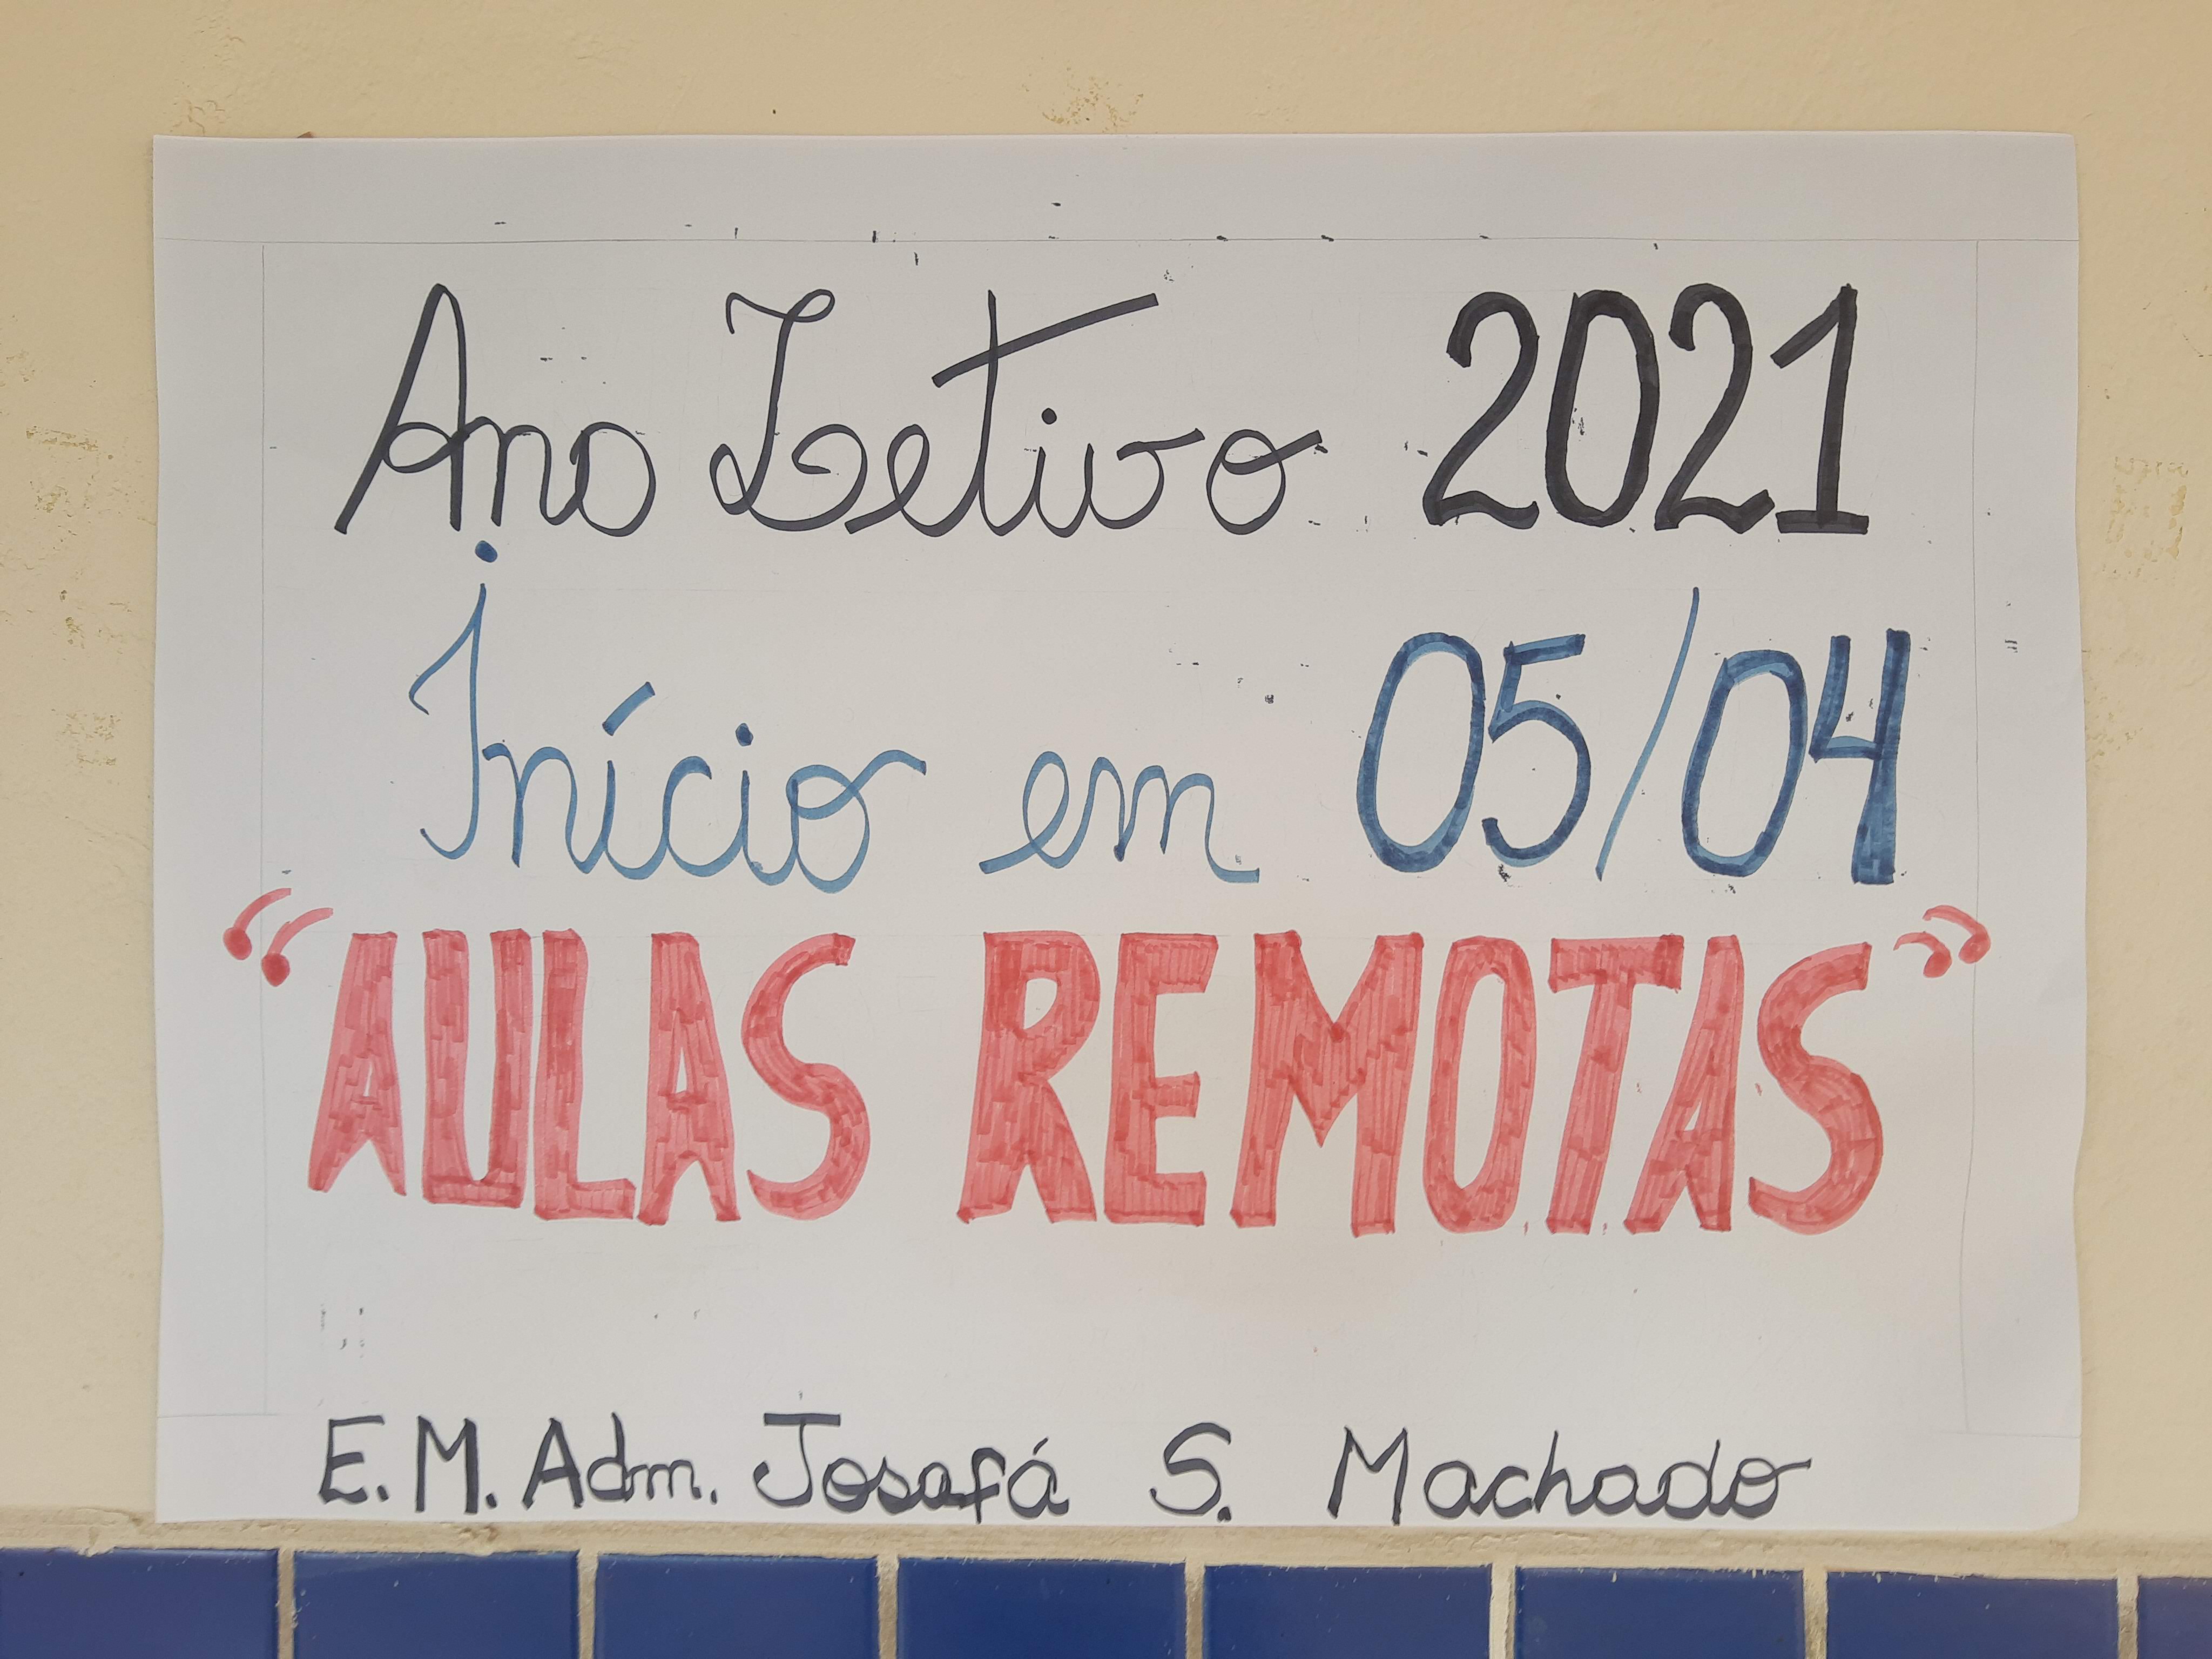 Ano Letivo 2021
Início em 05/04
“AULAS REMOTAS”
E. M. Adm. Josafá S. Machado